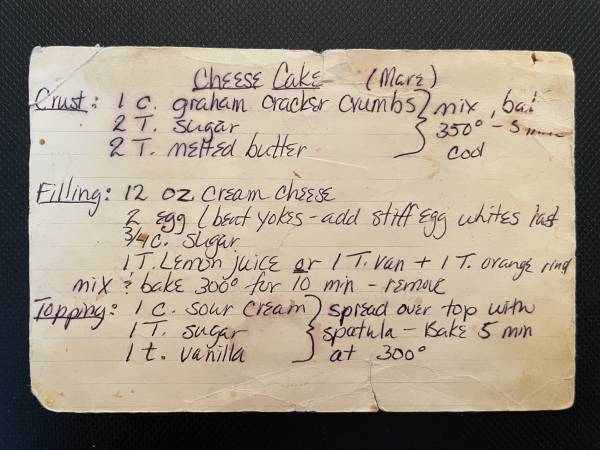 Cheese Cake (Marc)
Crust: 1 c. graham cracker crumbs } mix,
2 T. sugar 350° - 5
2 T. melted butter cool
Filling: 12 oz cream cheese
2 egg (beat yokes - add stiff egg whites last
3/4 c. sugar
1 T. Lemon juice or 1 T. van + 1 T. orange rind
mix & bake 300° for 10 min - remove
Topping: 1 c. sour cream } spread over top with
1 T. sugar spatula - Bake 5 min
1 t. vanilla at 300°